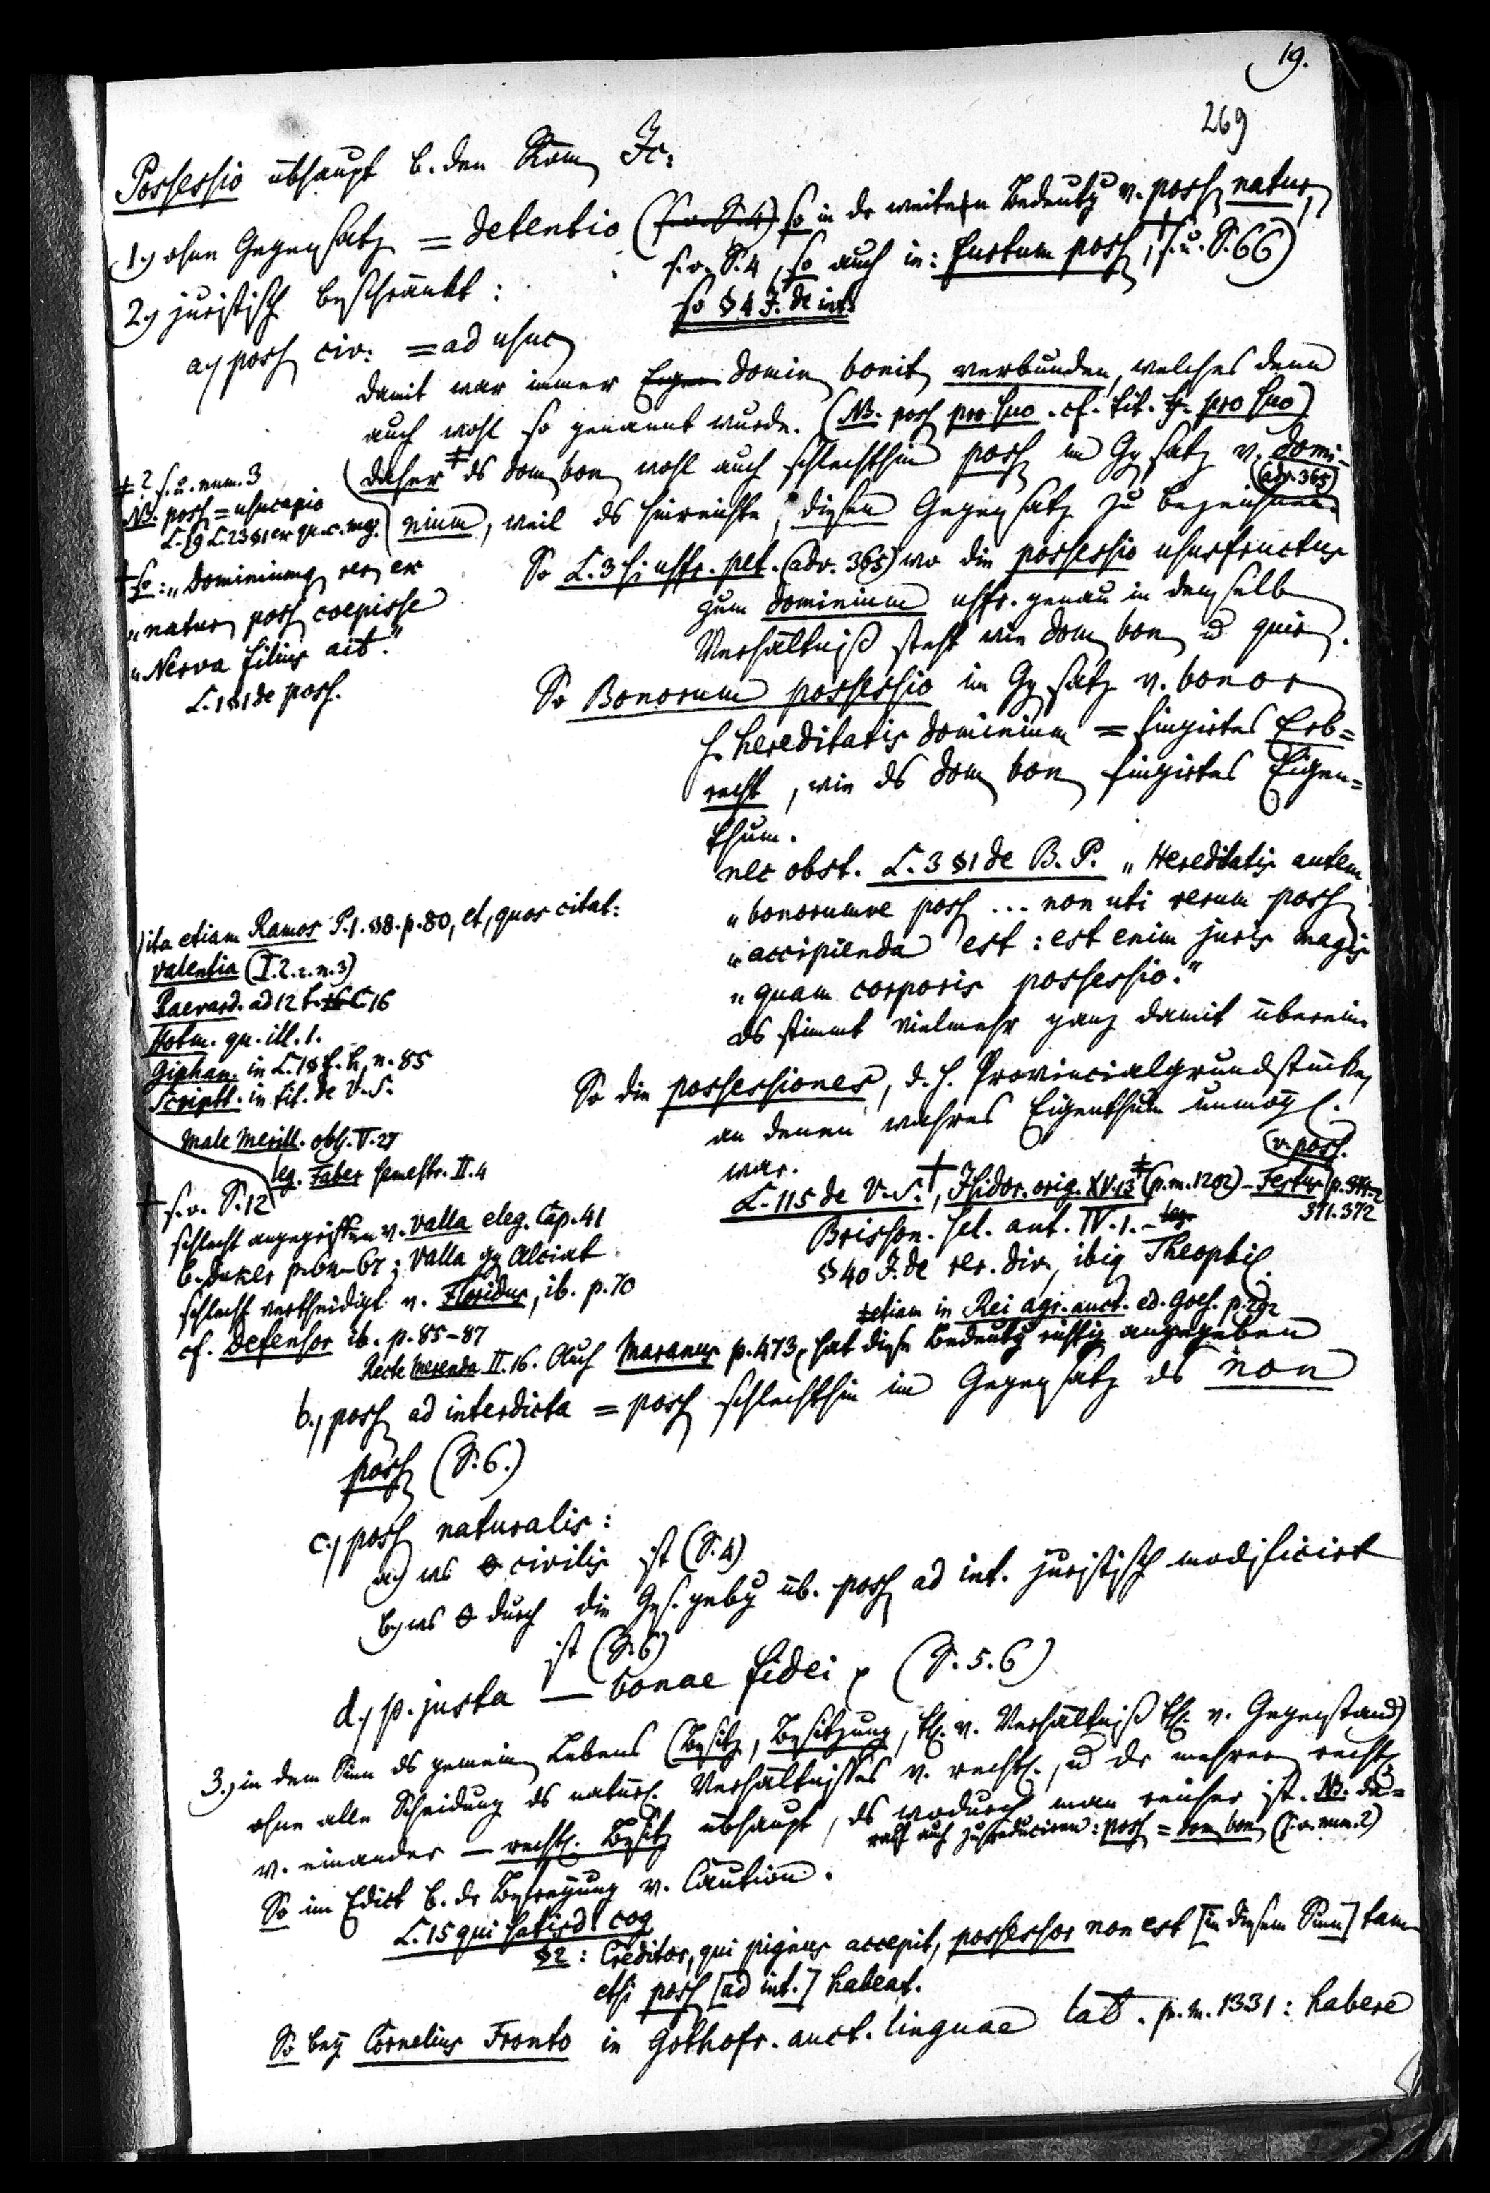 19.
269
Possessio übhaupt b. den Röm Jc:
1.) ohne Gegensatz = detentio (s. o. S. 4) so in dr weitern Bedeutg v. poss natur,
s. o. S. 4, so auch in: furtum poss, † s. u. S. 66)
so § 4 J. de int:
2.) juristisch beschränkt:
a.) poss civ: = ad usuc
damit war immer Eigen domin bonit verbunden, welches denn
auch wohl so genannt wurde. (NB. poss pro suo. cf. tit. pro suo)
daher ‡ ds dom bon wohl auch schlechthin poss im Ggsatz v. domi-
(adv. 365)
nium, weil ds hinreichte, diesen Gegensatz zu bezeichnen
‡ ? s. u. num. 3
NB. poss = usucapio
L. 19 L 23 § 1 ex qu. c. maj.
† so: "Dominiumq rer ex
"natur poss coepisse
"Nerva filius ait."
L. 1 § 1 de poss.
So L. 3 si usfr. pet. (adv. 365) wo die possessio ususfructus
zum dominium usfr. genau in demselb
Verhältniß steht wie dom bon u quir.
So Bonorum possessio im Ggsatz v. bonor
s. hereditatis dominium = fingirtes Erb=
recht, wie ds dom bon fingirtes Eigen=
thum.
nec obst. L. 3 § 1 de B. P. "Hereditatis autem
"bonorumve poss ... non uti rerum poss
"accipienda est: est enim juris magis
"quam corporis possessio."
ds stimmt vielmehr ganz damit überein
ita etiam Ramos P. 1. §8. p. 80, et, quos citat:
Valentia (I. 2. 2. n. 3)
Raevard. ad 12 t. C 16
Hotm. qu. ill. 1.
Giphan. in L. 18 t. h, n. 85
Scriptt. in tit. de V. S.
Male Merill. obs. V. 27
eg. Faber semestr. II. 4
So die possessiones, d. h. Provincialgrundstücke,
an denen wahres Eigenthum unmögl.
war.
(v. poss.
L. 115 de V. S. †, Isidor. orig. XV. 13 ‡ (p. m. 1202) – Festus (p.
371. 372
Brisson. sel. ant. IV. 1. –
§ 40 J. de rer. div, ibiq Theophil.
‡ etiam in Rei agr. auct. ed. Goes. p. 292
† s. o. S. 12
schlecht angegriffen v. Valla eleg. Cap. 41
b. Duker p. 64–67; Valla gg Alciat
schlecht vertheidigt v. Floridus, ib. p. 70
cf. Defensor ib. p. 85–87
Recte Merenda II. 16. Auch Maranus p. 473, hat diese Bedeutg richtig angegeben
b.) poss ad interdicta = poss schlechthin im Gegensatz ds non
poss (S. 6.)
c.) poss naturalis:
a) ws civilis ist (S. 4)
b) ws durch die Gesgebg üb. poss ad int. juristisch modificirt
ist (S. 6)
d.) p. justa — bonae fidei, (S. 5. 6)
3.) in dem Sinn ds gemein Lebens (Besitz, Besitzung, thl. v. Verhältniß thl. v. Gegenstand)
ohne alle Scheidung ds natürl. Verhältnisses v. rechtl., u dr mehrer rechtl
v. einander — rechtl. Besitz übhaupt, ds wodurch man reicher ist. NB. da=
rauf auch zu reduciren: poss = dom bon (s. o. num. 2)
So im Edict b. dr Befreyung v. Caution.
L. 15 qui satisd. cog
§ 2: Creditor, qui pignus accepit, possessor non est [in diesem Sinn] tam
etsi poss [ad int.] habeat.
So bey Cornelius Fronto in Gothofr. auct. linguae lat. p. m. 1331: habere